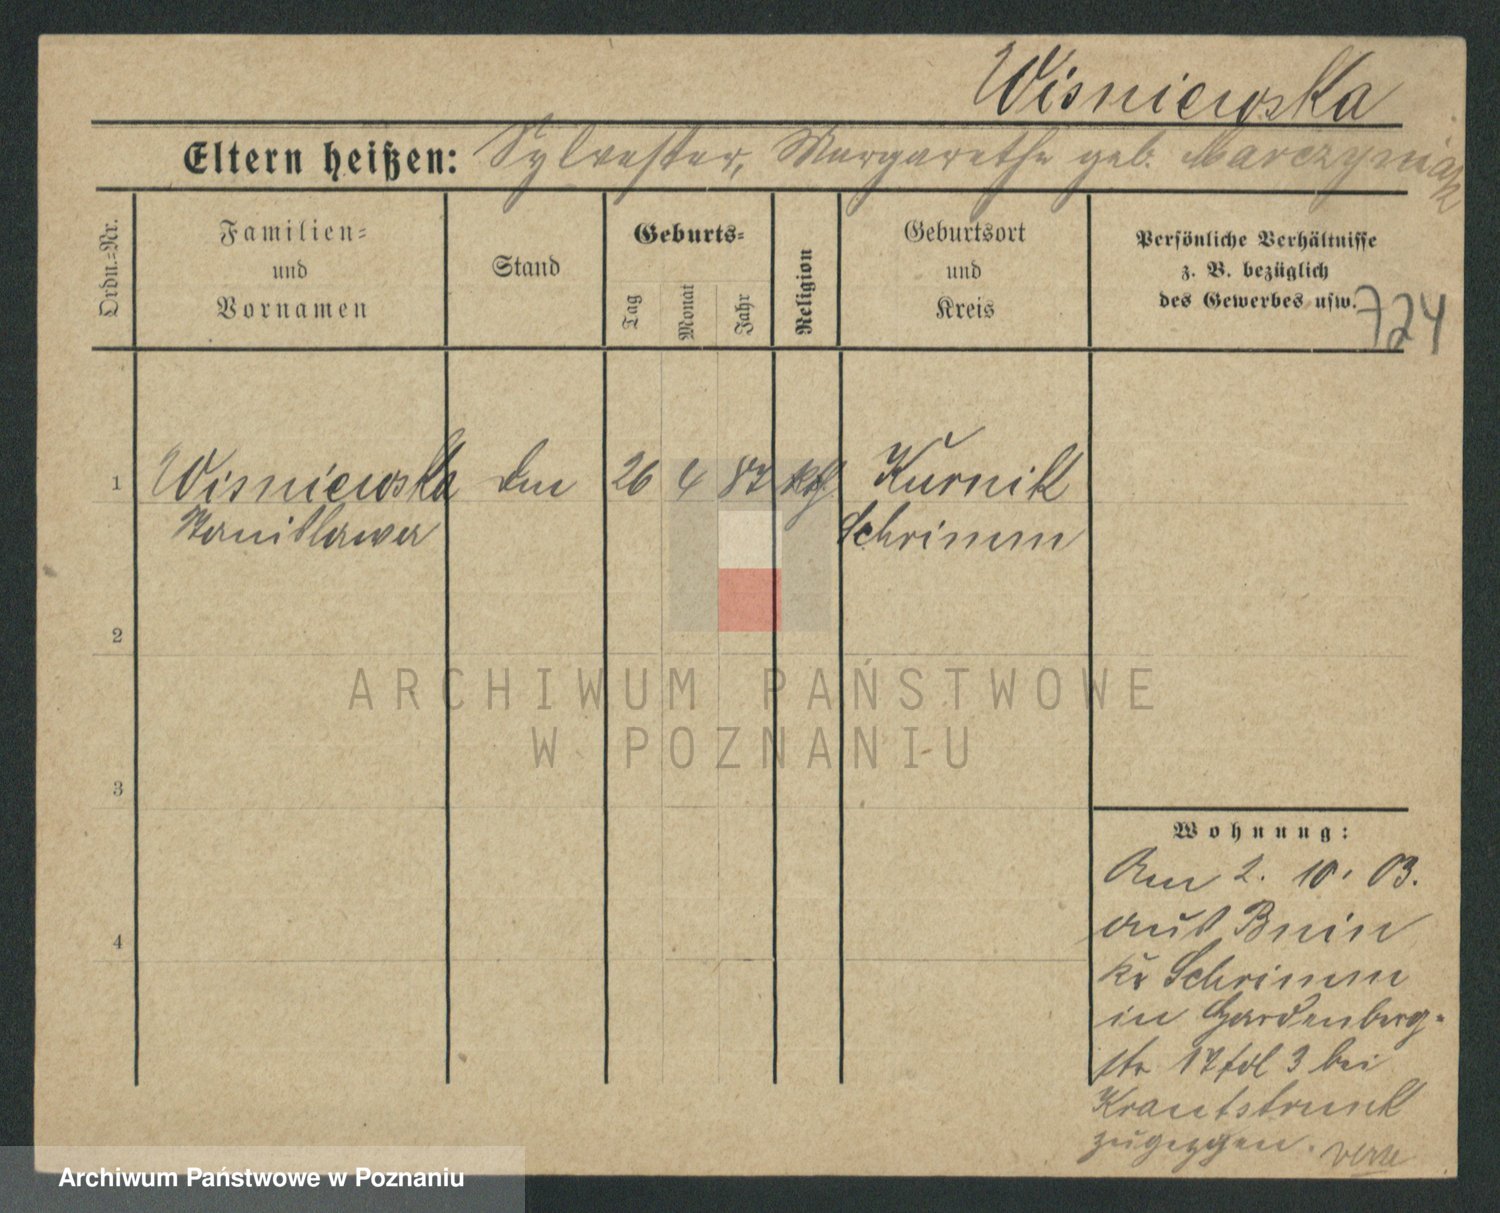 Wisniewska
Eltern heißen: Sylvester, Margarethe geb. Marczyniak
Ordn.-Nr.
Familien- und Vornamen
Stand
Geburts-
Tag
Monat
Jahr
Religion
Geburtsort und Kreis
Persönliche Verhältnisse
z. B. bezüglich
des Gewerbes usw.
724
1 Wisniewska 26 4 87 kth Kurnik
Stanislawa Schrimm
2
3
4
ARCHIWUM PAŃSTWOWE
W POZNANIU
Wohnung:
Am 2. 10. 03.
aus Bnin
Kr Schrimm
in Hardenberg-
str 17 bei
Krautstrunk
zugezogen.
Archiwum Państwowe w Poznaniu